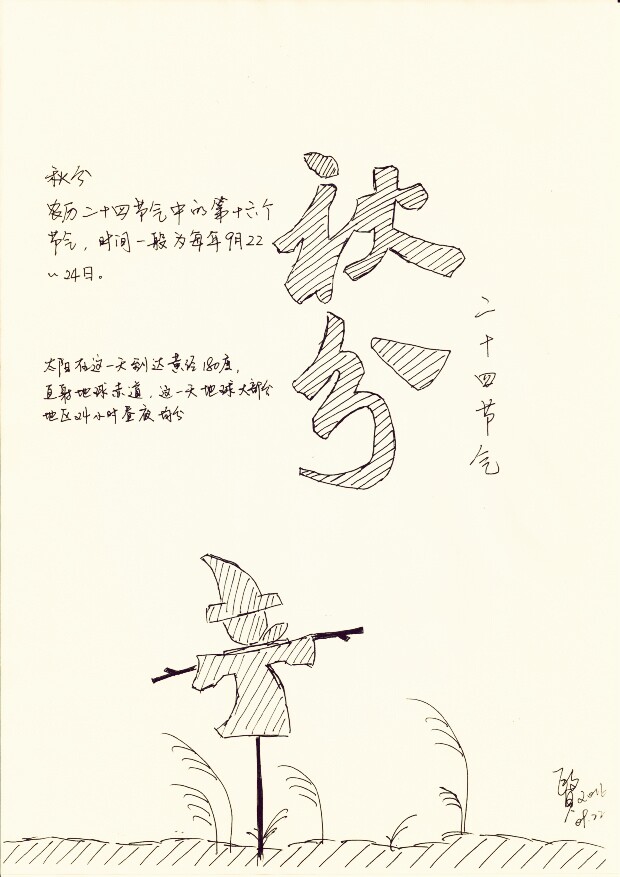 秋分
农历二十四节气中的第十六个
节气，时间一般为每年9月22
~24日。
太阳在这一天到达黄经180度，
直射地球赤道，这一天地球大部分
地区24小时昼夜均分
秋分
二十四节气
2016
09.22